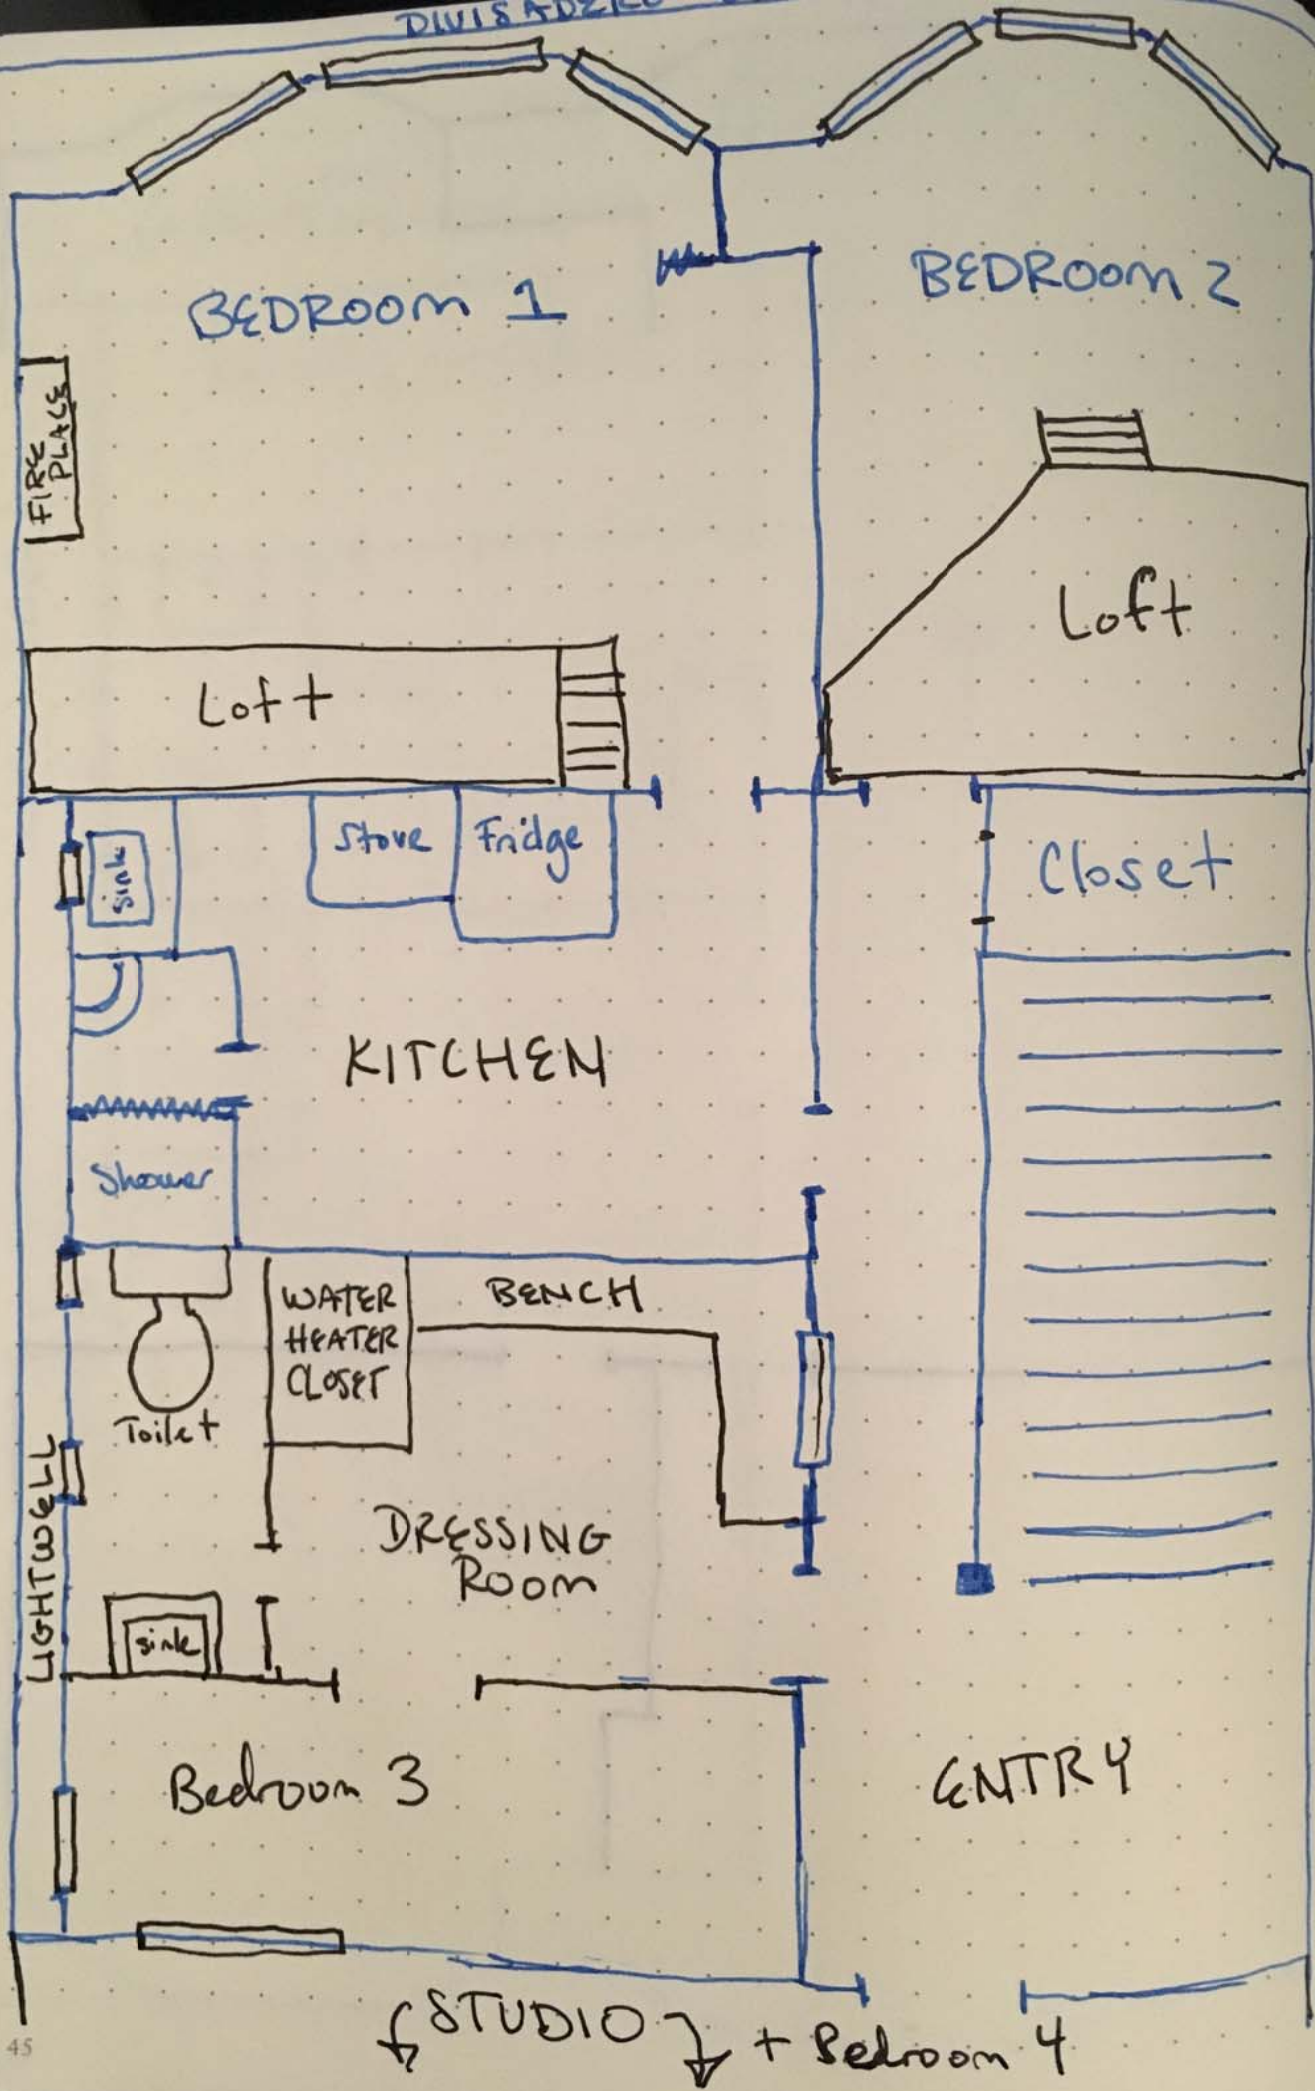 DIVISADERO
BEDROOM 1
BEDROOM 2
FIRE
PLACE
Loft
Loft
sink
Stove
Fridge
Closet
KITCHEN
Shower
WATER
HEATER
CLOSET
BENCH
Toilet
LIGHTWELL
DRESSING
ROOM
sink
Bedroom 3
ENTRY
STUDIO + Bedroom 4
45